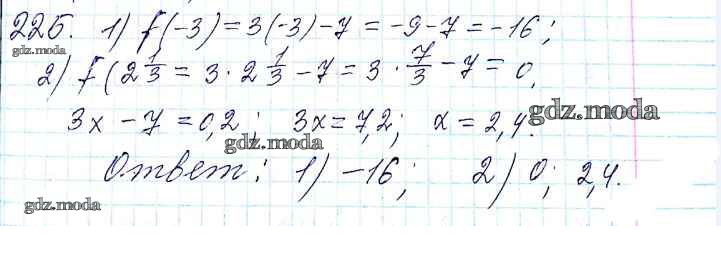 225. 1) f(-3) = 3(-3) - 7 = -9 - 7 = -16;
gdz.moda
2) f(2 1/3 = 3 · 2 1/3 - 7 = 3 · 7/3 - 7 = 0,
3x - 7 = 0,2; 3x = 7,2; x = 2,4.
gdz.moda
gdz.moda
Ответ: 1) -16; 2) 0; 2,4.
gdz.moda